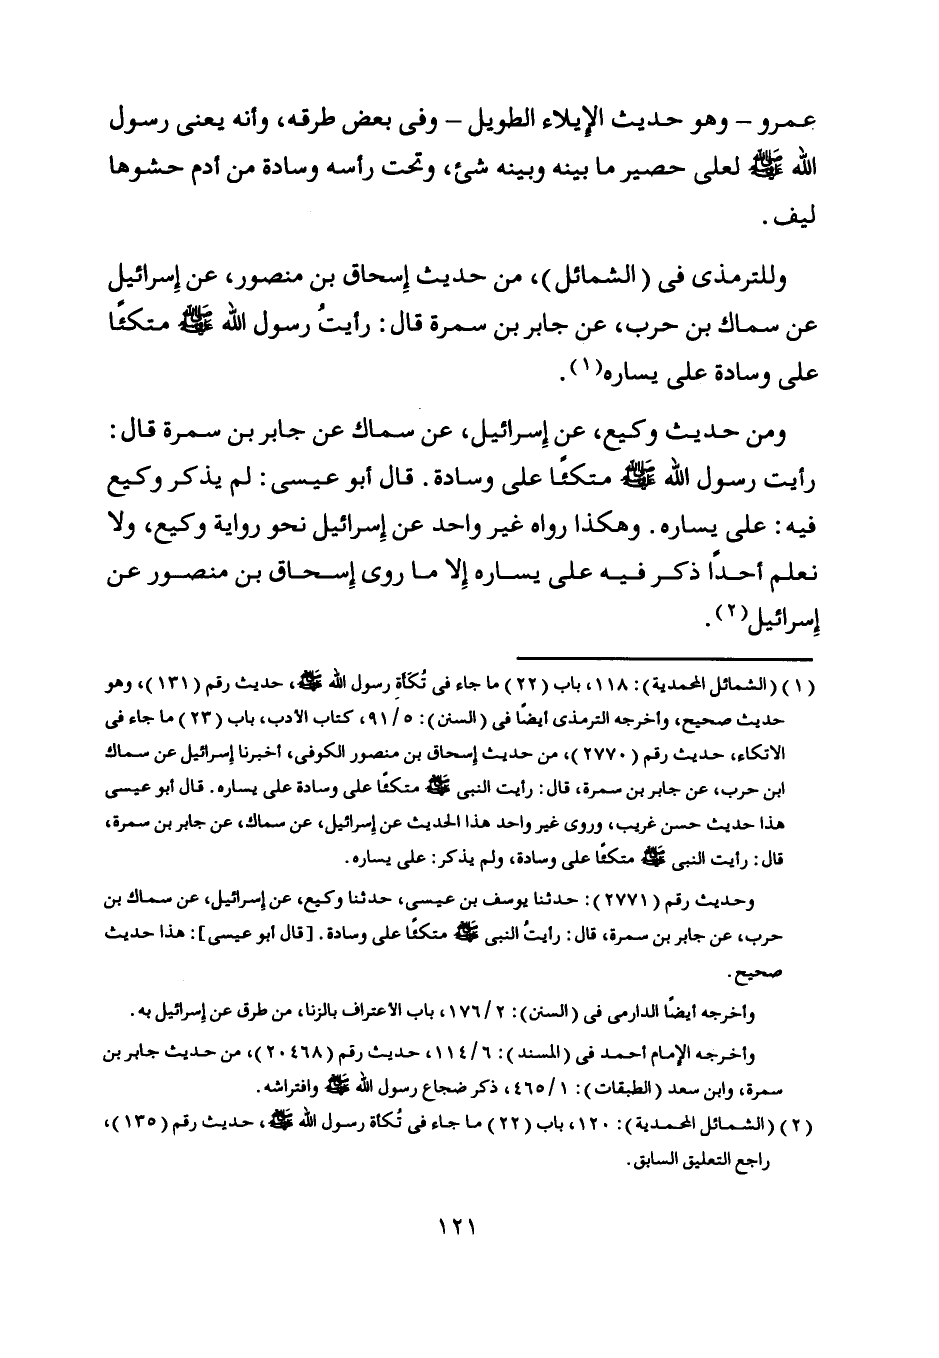 عمرو – وهو حديث الإيلاء الطويل – وفى بعض طرقه، وأنه يعنى رسول
الله ﷺ لعلى حصير ما بينه وبينه شئ، وتحت رأسه وسادة من أدم حشوها
ليف.
وللترمذى فى (الشمائل)، من حديث إسحاق بن منصور، عن إسرائيل
عن سماك بن حرب، عن جابر بن سمرة قال: رأيتُ رسول الله ﷺ متكئًا
على وسادة على يساره(١).
ومن حديث وكيع، عن إسرائيل، عن سماك عن جابر بن سمرة قال:
رأيت رسول الله ﷺ متكئًا على وسادة. قال أبو عيسى: لم يذكر وكيع
فيه: على يساره. وهكذا رواه غير واحد عن إسرائيل نحو رواية وكيع، ولا
نعلم أحدًا ذكر فيه على يساره إلا ما روى إسحاق بن منصور عن
إسرائيل(٢).
(١) (الشمائل المحمدية): ١١٨، باب (٢٢) ما جاء فى تُكَأَةِ رسول الله ﷺ، حديث رقم (١٣١)، وهو
حديث صحيح، وأخرجه الترمذى أيضًا فى (السنن): ٥/ ٩١، كتاب الأدب، باب (٢٣) ما جاء فى
الاتكاء، حديث رقم (٢٧٧٠)، من حديث إسحاق بن منصور الكوفى، أخبرنا إسرائيل عن سماك
ابن حرب، عن جابر بن سمرة، قال: رأيت النبى ﷺ متكئًا على وسادة على يساره. قال أبو عيسى
هذا حديث حسن غريب، وروى غير واحد هذا الحديث عن إسرائيل، عن سماك، عن جابر بن سمرة،
قال: رأيت النبى ﷺ متكئًا على وسادة، ولم يذكر: على يساره.
وحديث رقم (٢٧٧١): حدثنا يوسف بن عيسى، حدثنا وكيع، عن إسرائيل، عن سماك بن
حرب، عن جابر بن سمرة، قال: رأيتُ النبى ﷺ متكئًا على وسادة. [قال أبو عيسى]: هذا حديث
صحيح.
وأخرجه أيضًا الدارمى فى (السنن): ٢/ ١٧٦، باب الاعتراف بالزنا، من طرق عن إسرائيل به.
وأخرجه الإمام أحمد فى (المسند): ٦/ ١١٤، حديث رقم (٢٠٤٦٨)، من حديث جابر بن
سمرة، وابن سعد (الطبقات): ١/ ٤٦٥، ذكر ضجاع رسول الله ﷺ وافتراشه.
(٢) (الشمائل المحمدية): ١٢٠، باب (٢٢) ما جاء فى تُكأة رسول الله ﷺ، حديث رقم (١٣٥)،
راجع التعليق السابق.
١٢١